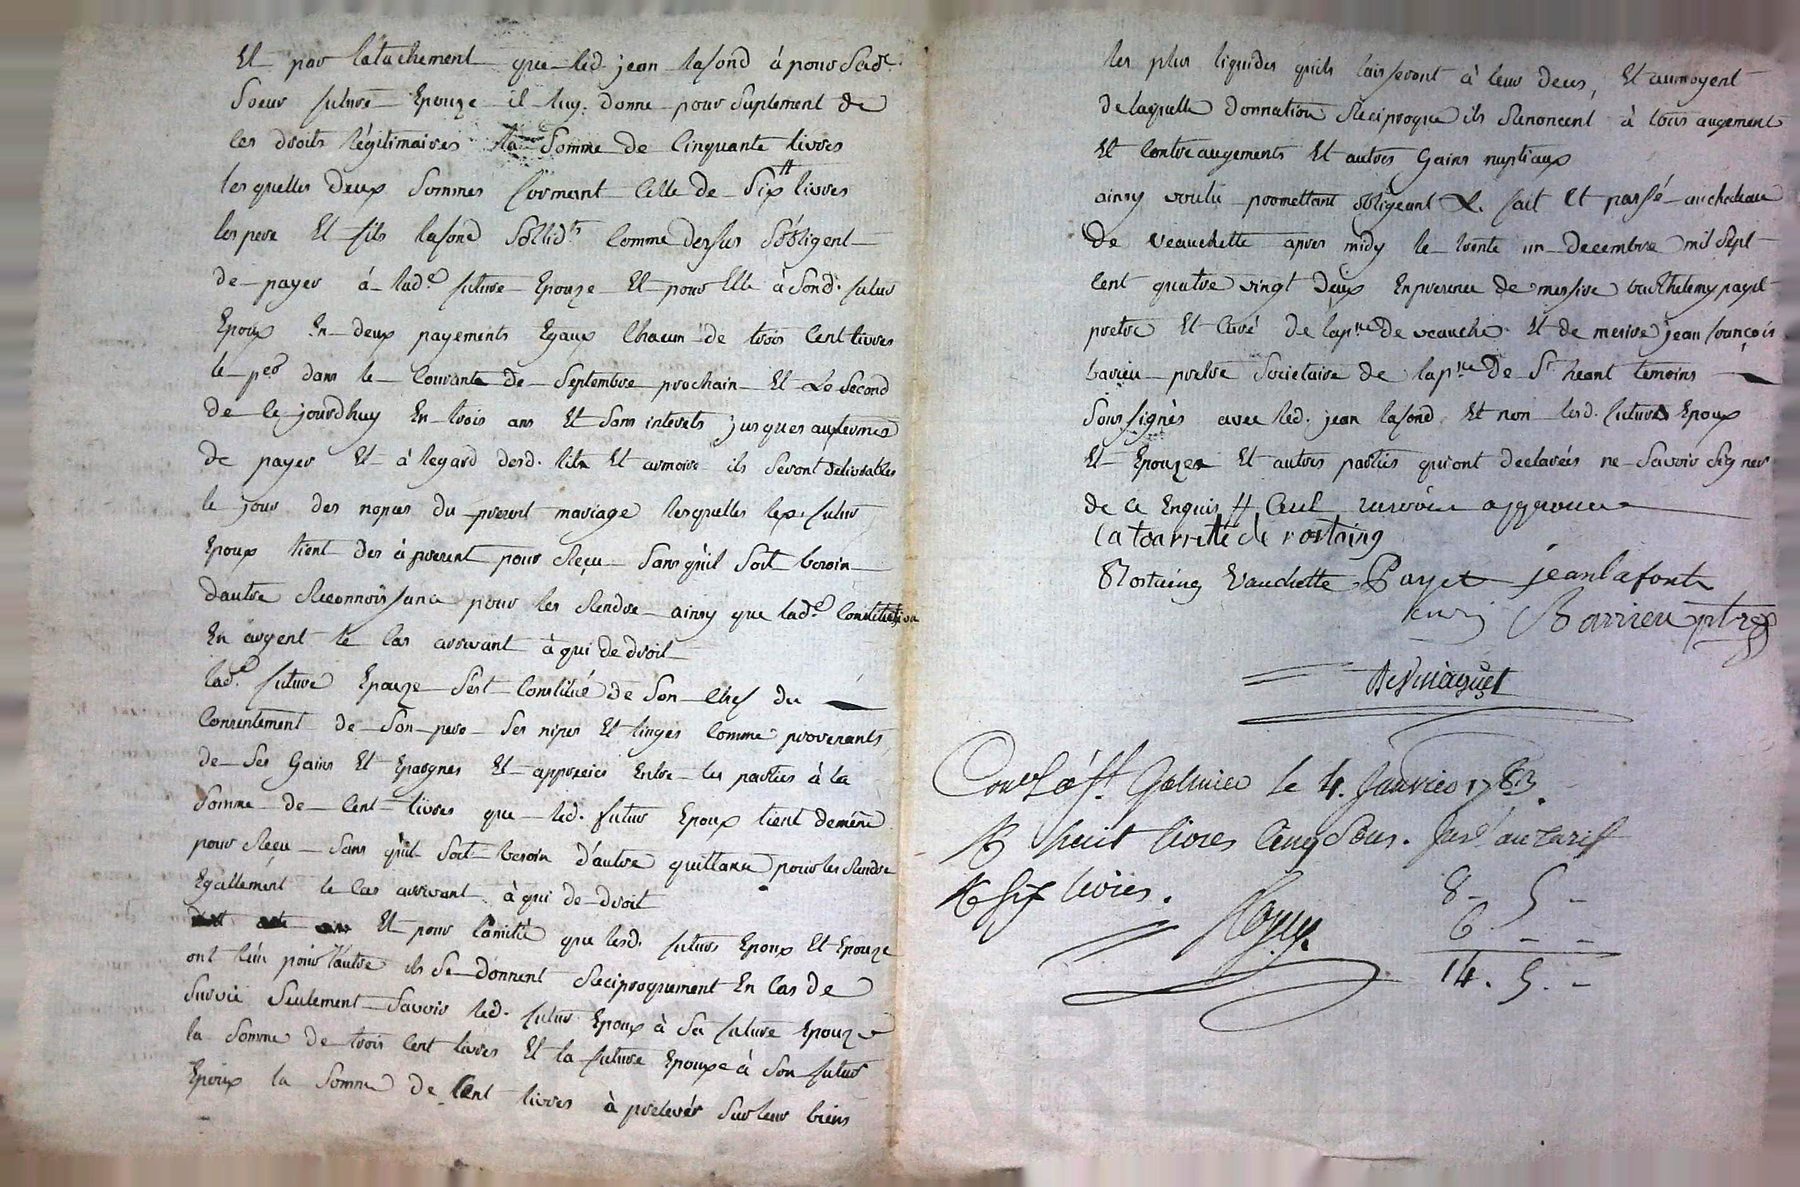 Et par latachement que led. jean lafond à pour Sade.
Soeur future Epouze il luy donne pour Suplement de
ces droits légitimaires la Somme de Cinquante livres
lesquelles deux Sommes formant Celle de Six # livres
les pere Et fils lafond Sollid.ts Comme dessus S'obligent
de payer à lad.e future Epouze Et pour Elle à Sond. futur
Epoux En deux payements Egaux Chacun de trois Cent livres
le p.er dans le Courante de Septembre prochain Et Le Second
de Ce jourdhuy En trois ans Et Sans interets jusques aux termes
de payer Et à legard desd. lits Et armoire ils Seront delivrables
le jour des nopces du present mariage lesquelles led. futur
Epoux tient des à present pour Reçu Sans qu'il Soit besoin
dautre Reconnoissance pour les Rendre ainsy que lad.e Constitution
En argent le Cas arrivant à qui de droit
lad.e future Epouze Sest Constitué de Son Chef du
Consentement de Son pere Ses nipes Et linges Comme provenants
de Ses Gains Et Epargnes Et appreciés Entre les parties à la
Somme de Cent livres que led. futur Epoux tient demême
pour Reçu Sans qu'il Soit besoin d'autre quittance pour les Rendre
Egallement le Cas arrivant à qui de droit
Et pour lamitié que lesd. futurs Epoux Et Epouze
ont l'un pour l'autre ils Se donnent Reciproquement En Cas de
Survie Seulement Savoir led. futur Epoux à Sa future Epouze
la Somme de trois Cent livres Et la future Epouze à Son futur
Epoux la Somme de Cent livres à prelever Sur leur biens
les plus liquides quils laisseront à leur deces, Et aumoyent
de laquelle donnation Reciproque ils Renoncent à tous augement
Et Contreaugements Et autres Gains nuptiaux
ainsy voulu promettant obligeant &. fait Et passé au chateau
de veauchette apres midy le trente un decembre mil Sept
Cent quatre vingt deux En presence de messire barthelemy payet
pretre Et Curé de la p.sse de veauche Et de mesire jean francois
barieu pretre Societaire de la p.sse de S.t heant temoins
Soussignés avec led. jean lafond Et non lesd. futurs Epoux
Et Epouze Et autres parties qui ont declarées ne Savoir Signer
de Ce Enquis # Cent renvoi approuvé
la tourrette de rostaing
Rostaing Vauchette Payet jean lafont
curé Barrieu ptre
Control. à S.t Galmier le 4. Janvier 1783.
R huit livres Cinq Sous. au tarif
R Six livres.
8 - 5 -
6 - -
14. 5. -